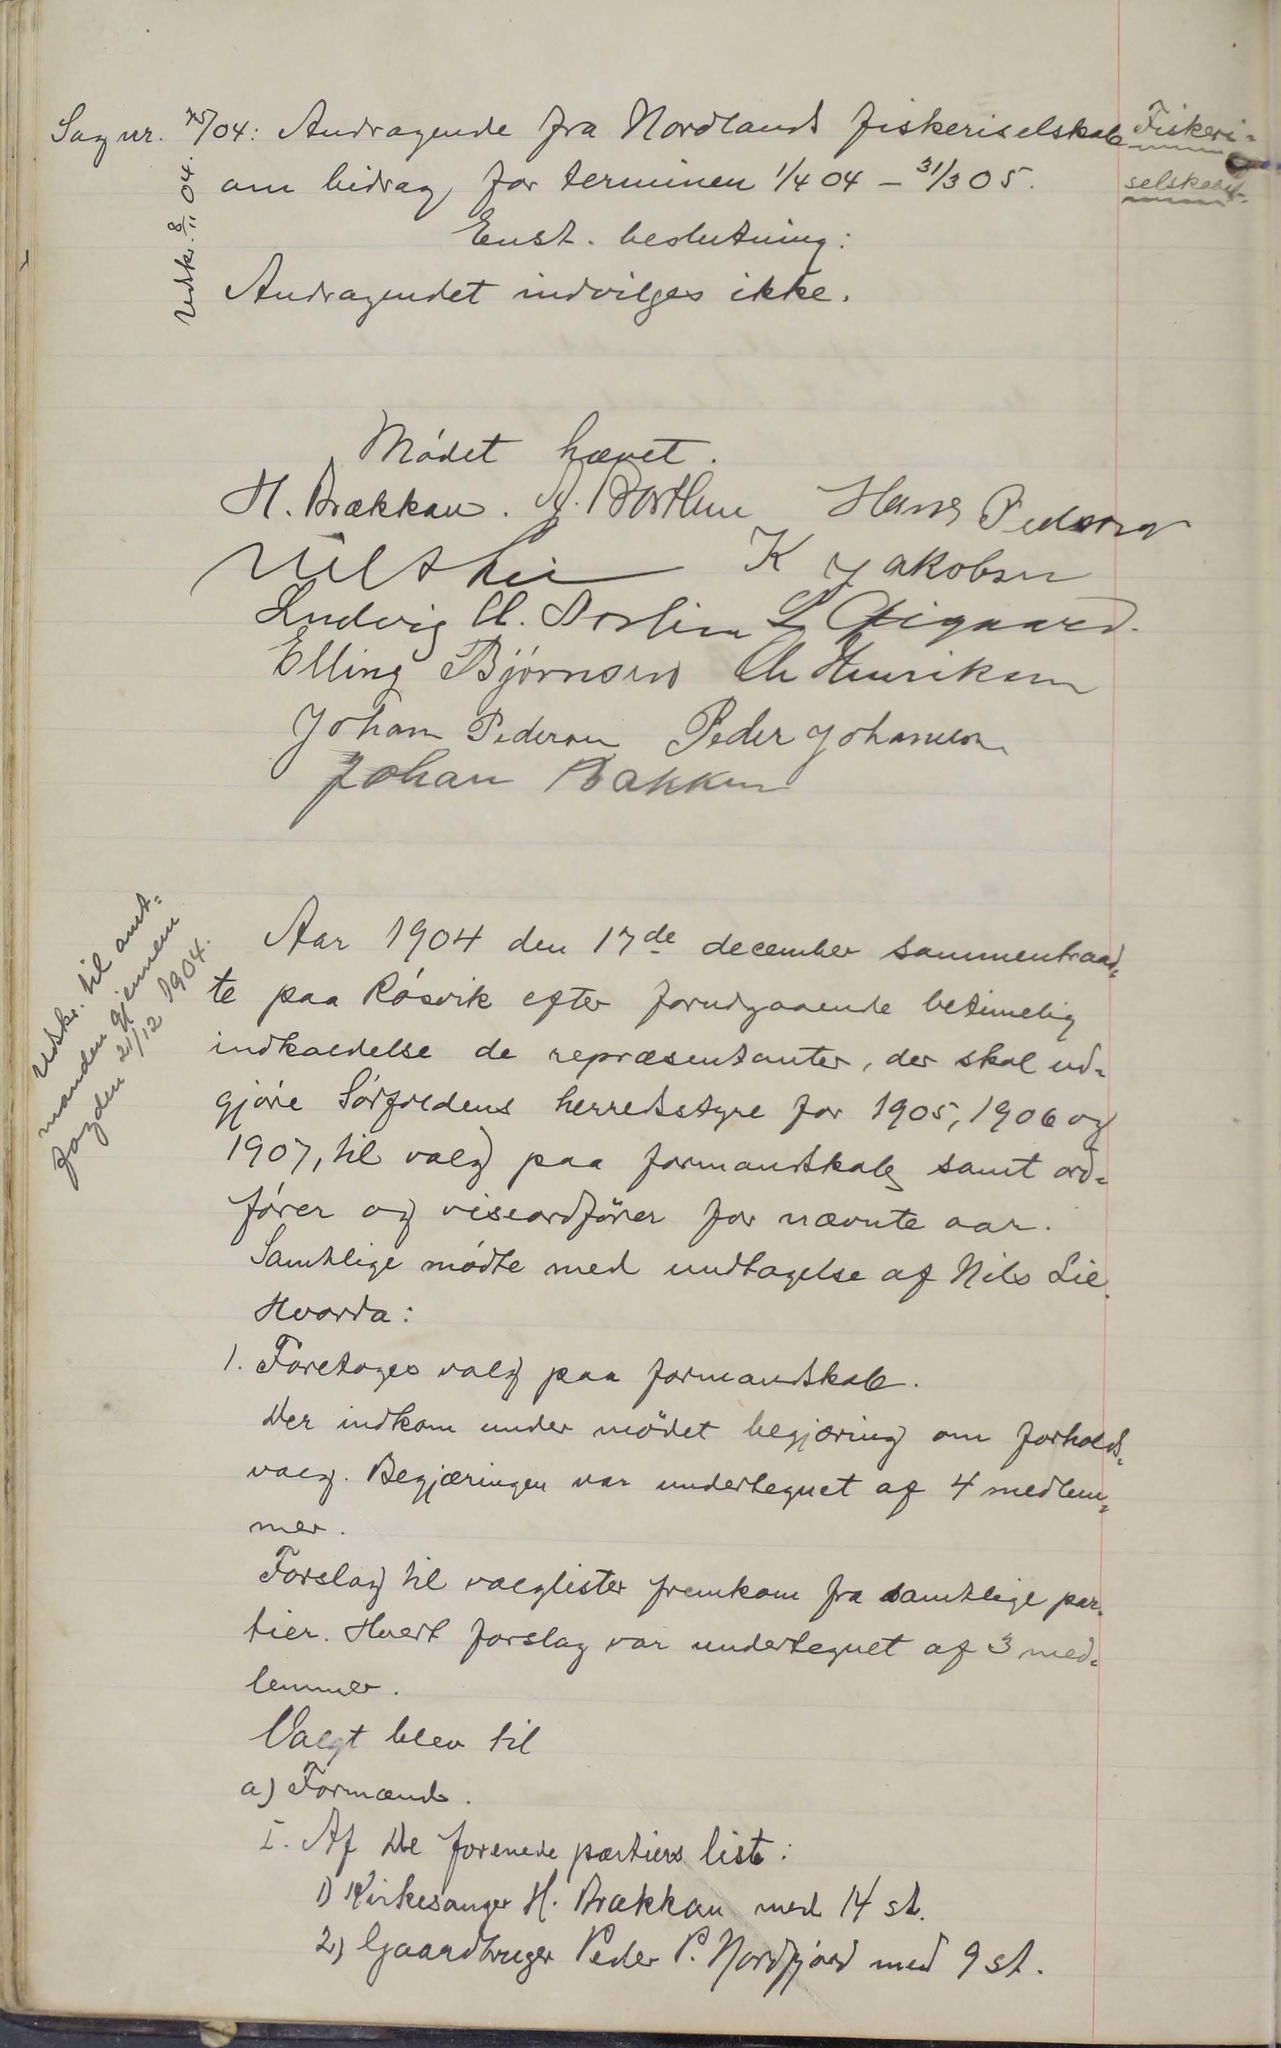 Sag nr. 75/04: Andragende fra Nordlands fiskeriselskab
om bidrag for terminen 1/4 04 – 31/3 05.
Enst. beslutning:
Andragendet indvilges ikke.
Fiskeri-
selskabet.
Udskr. 8/11 04.
Mødet hævet.
H. Brækkan. Hans Pedersen
K Jakobsen
Ludvig
Elling Bjørnsen Chr Henriksen
Johan Pedersen Peder Johansen
Johan Bakken
Udskr. til amt-
manden gjennem
fogden 21/12 1904.
Aar 1904 den 17de december sammentraad-
te paa Røsvik efter forudgaaende betimelig
indkaldelse de repræsentanter, der skal ud-
gjøre Sørfoldens herredsstyre for 1905, 1906 og
1907, til valg paa formandskab samt ord-
fører og viseordfører for nævnte aar.
Samtlige mødte med undtagelse af Nils Lie.
Hvorda:
1. Foretages valg paa formandskab.
Der indkom under mødet begjæring om forholds-
valg. Begjæringen var undertegnet af 4 medlem-
mer.
Forslag til valglister fremkom fra samtlige par-
tier. Hvert forslag var undertegnet af 3 med-
lemmer.
Valgt blev til
a) Formænd.
I. Af De forenede partiers liste:
1) Kirkesanger H. Brækkan med 14 st.
2) Gaardbruger Peder P. Nordfjord med 9 st.